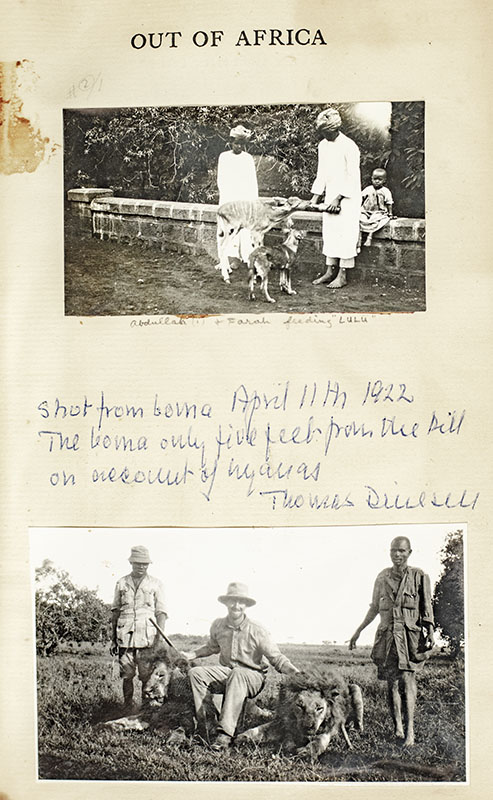 OUT OF AFRICA
Abdullah (?) & Farah feeding "LULU"
Shot from boma April 11th 1922
The boma only five feet from the kill
on account of hyenas
Thomas Dinesen